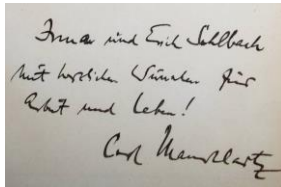 Irmar und Erich Sehlbach
mit herzlichen Wünschen für
Arbeit und Leben!
Carl